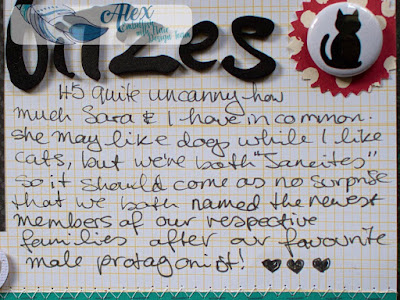 Alex
Design Team
itzes
It's quite uncanny how
much Sara & I have in common.
She may like dogs while I like
cats, but we're both "Janeites"
so it should come as no surprise
that we both named the newest
members of our respective
families after our favourite
male protagonist!